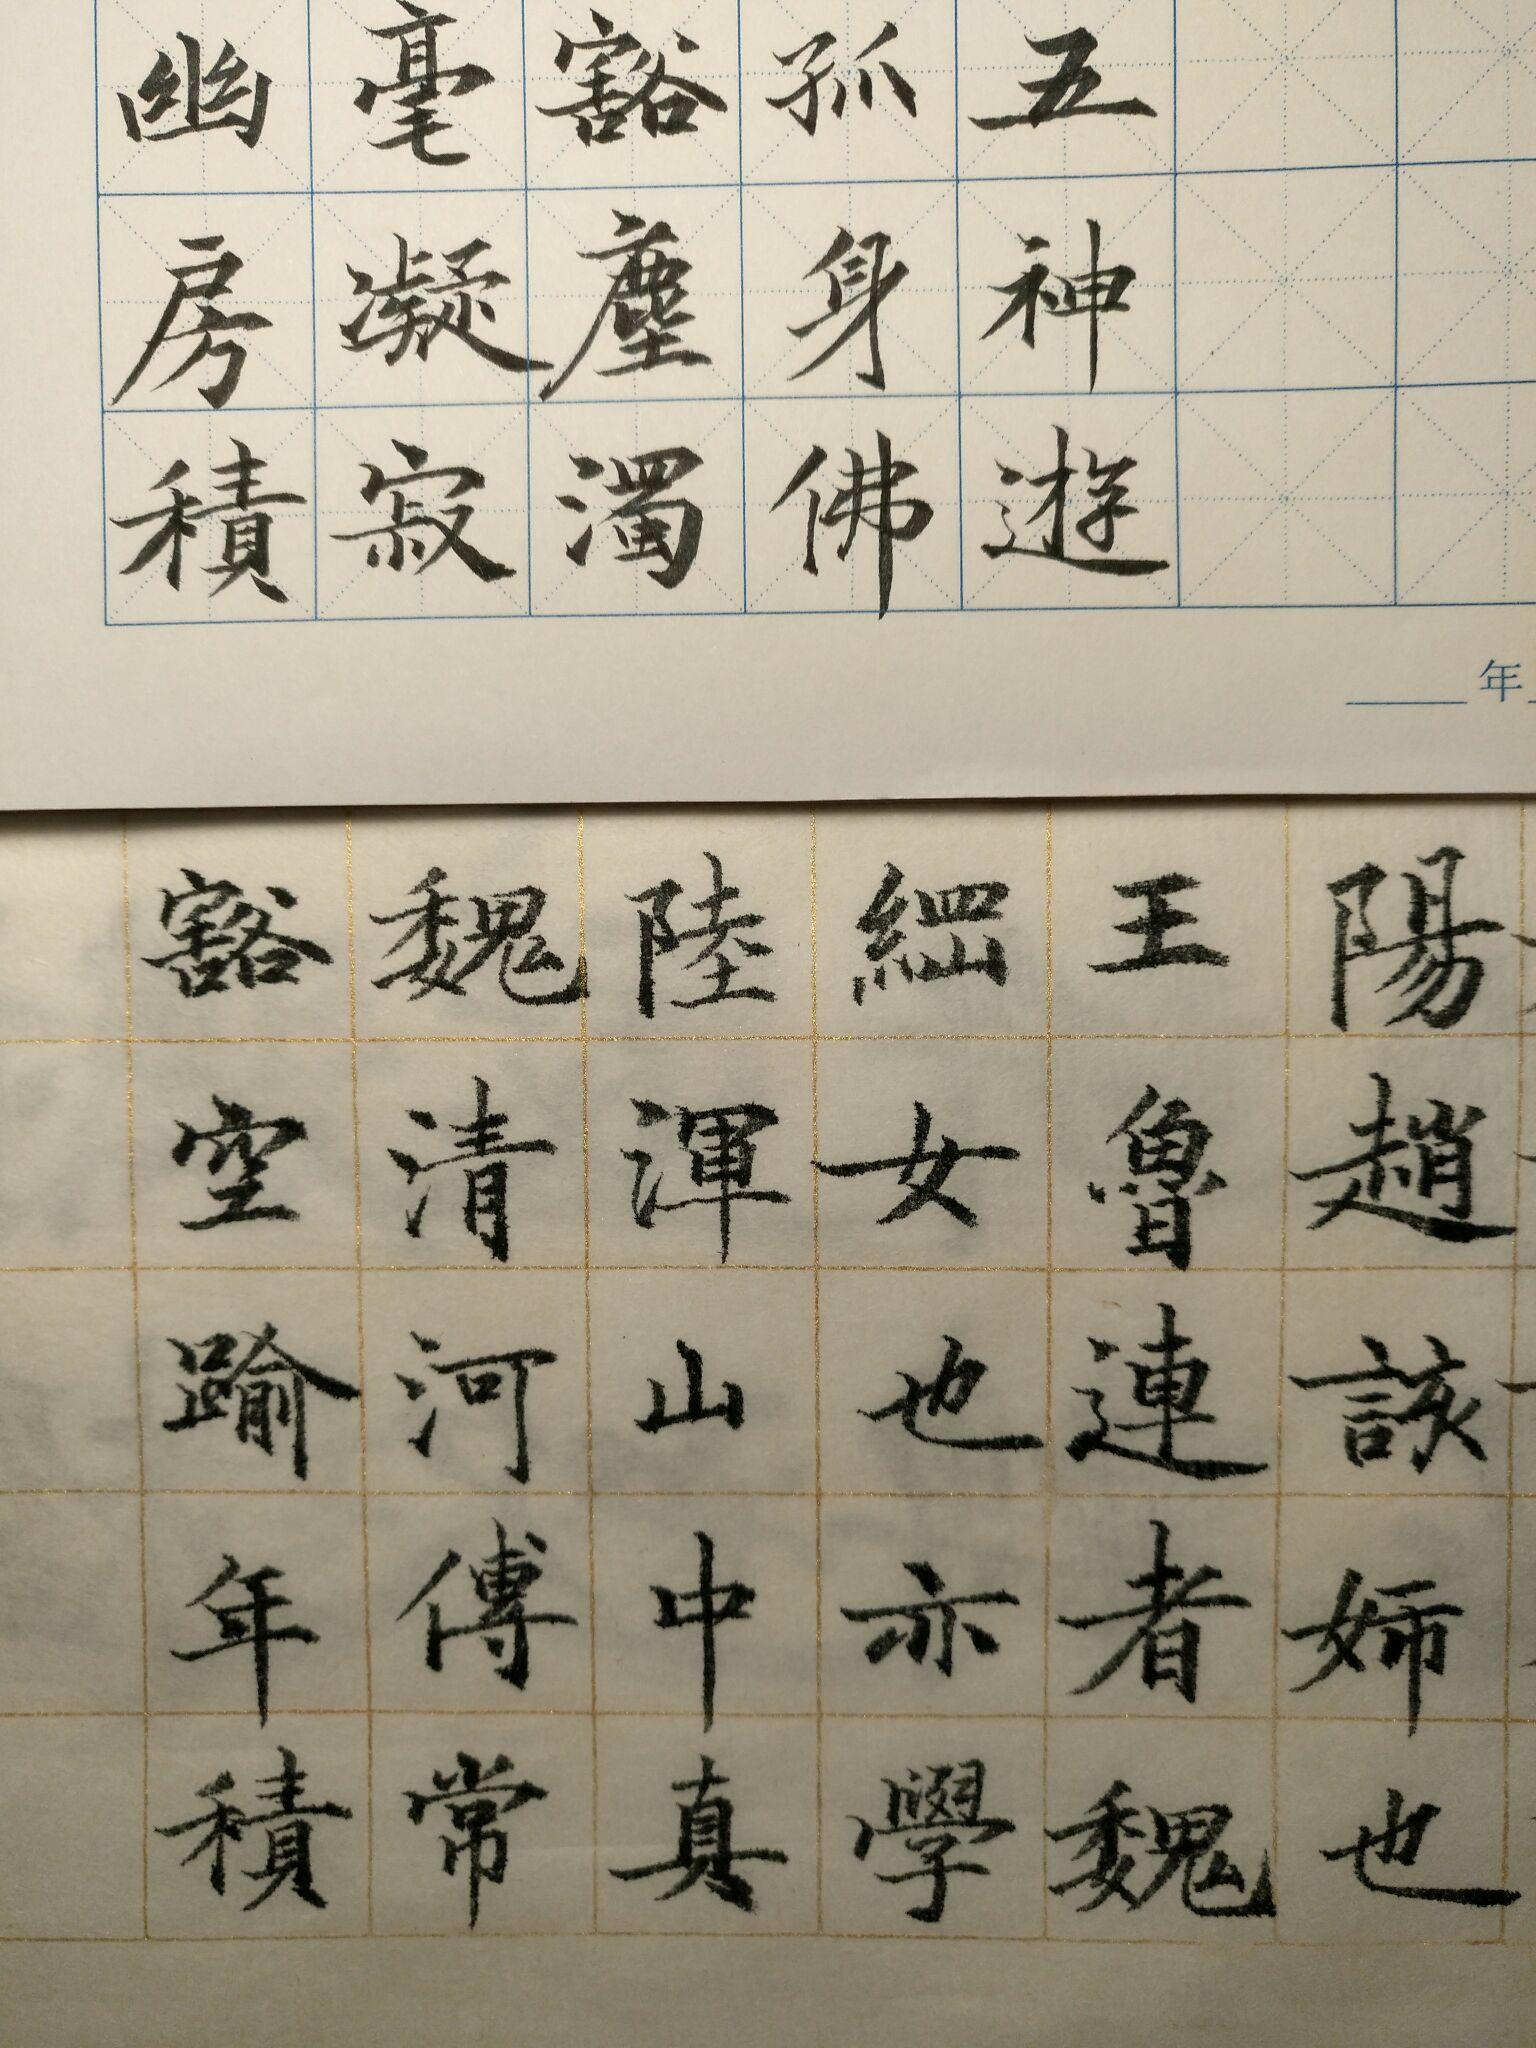 五神遊
孤身佛
豁塵濁
毫凝寂
幽房積
年
陽趙該姉也
王魯連者魏
綱女也亦學
陸渾山中真
魏清河傅常
豁空踰年積